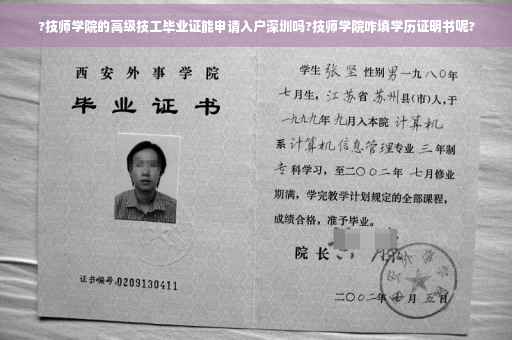 ?技师学院的高级技工毕业证能申请入户深圳吗?技师学院咋填学历证明书呢?
西安外事学院
毕业证书
证书编号:0209130411
学生 张坚 性别 男 一九八〇年
七月生，江苏省 苏州县(市)人，于
一九九九年 九月入本院 计算机
系 计算机信息管理专业 三 年制
专 科学习，至二〇〇二年 七月修业
期满，学完教学计划规定的全部课程，
成绩合格，准予毕业。
院长
二〇〇二年 月 五日